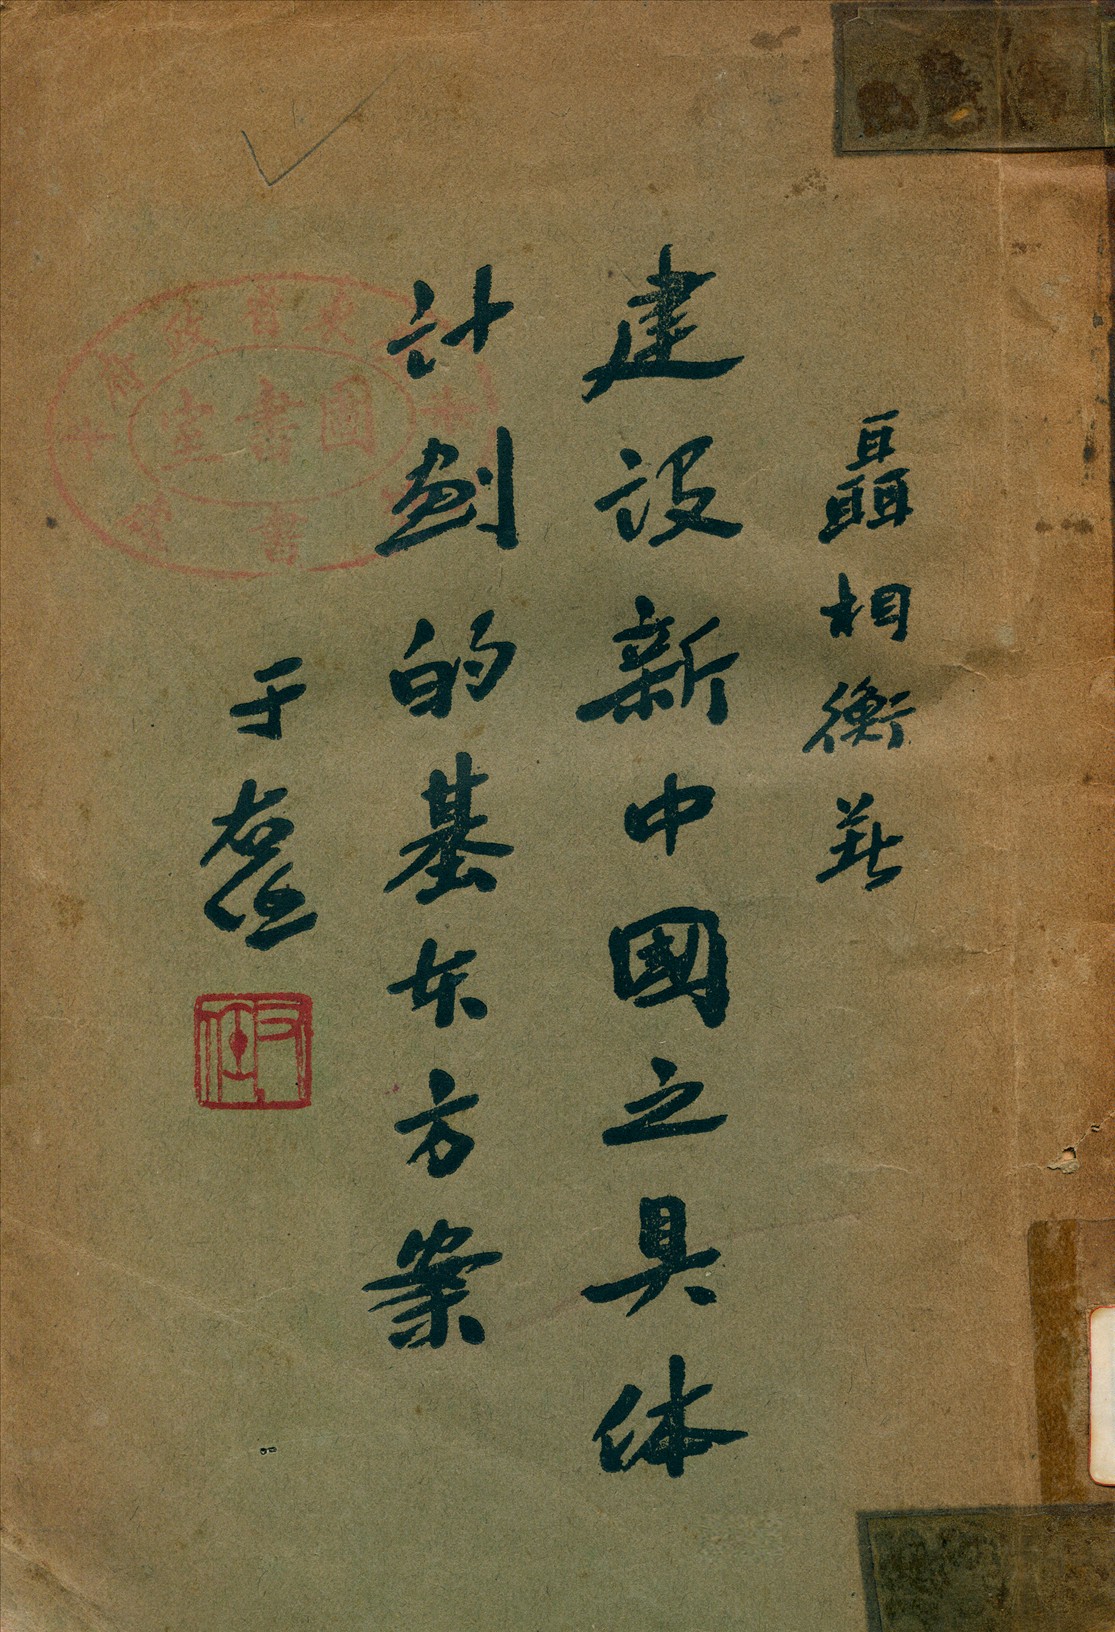 聶相衡著
建設新中國之具体
計劃的基本方案
于右任
圖書室